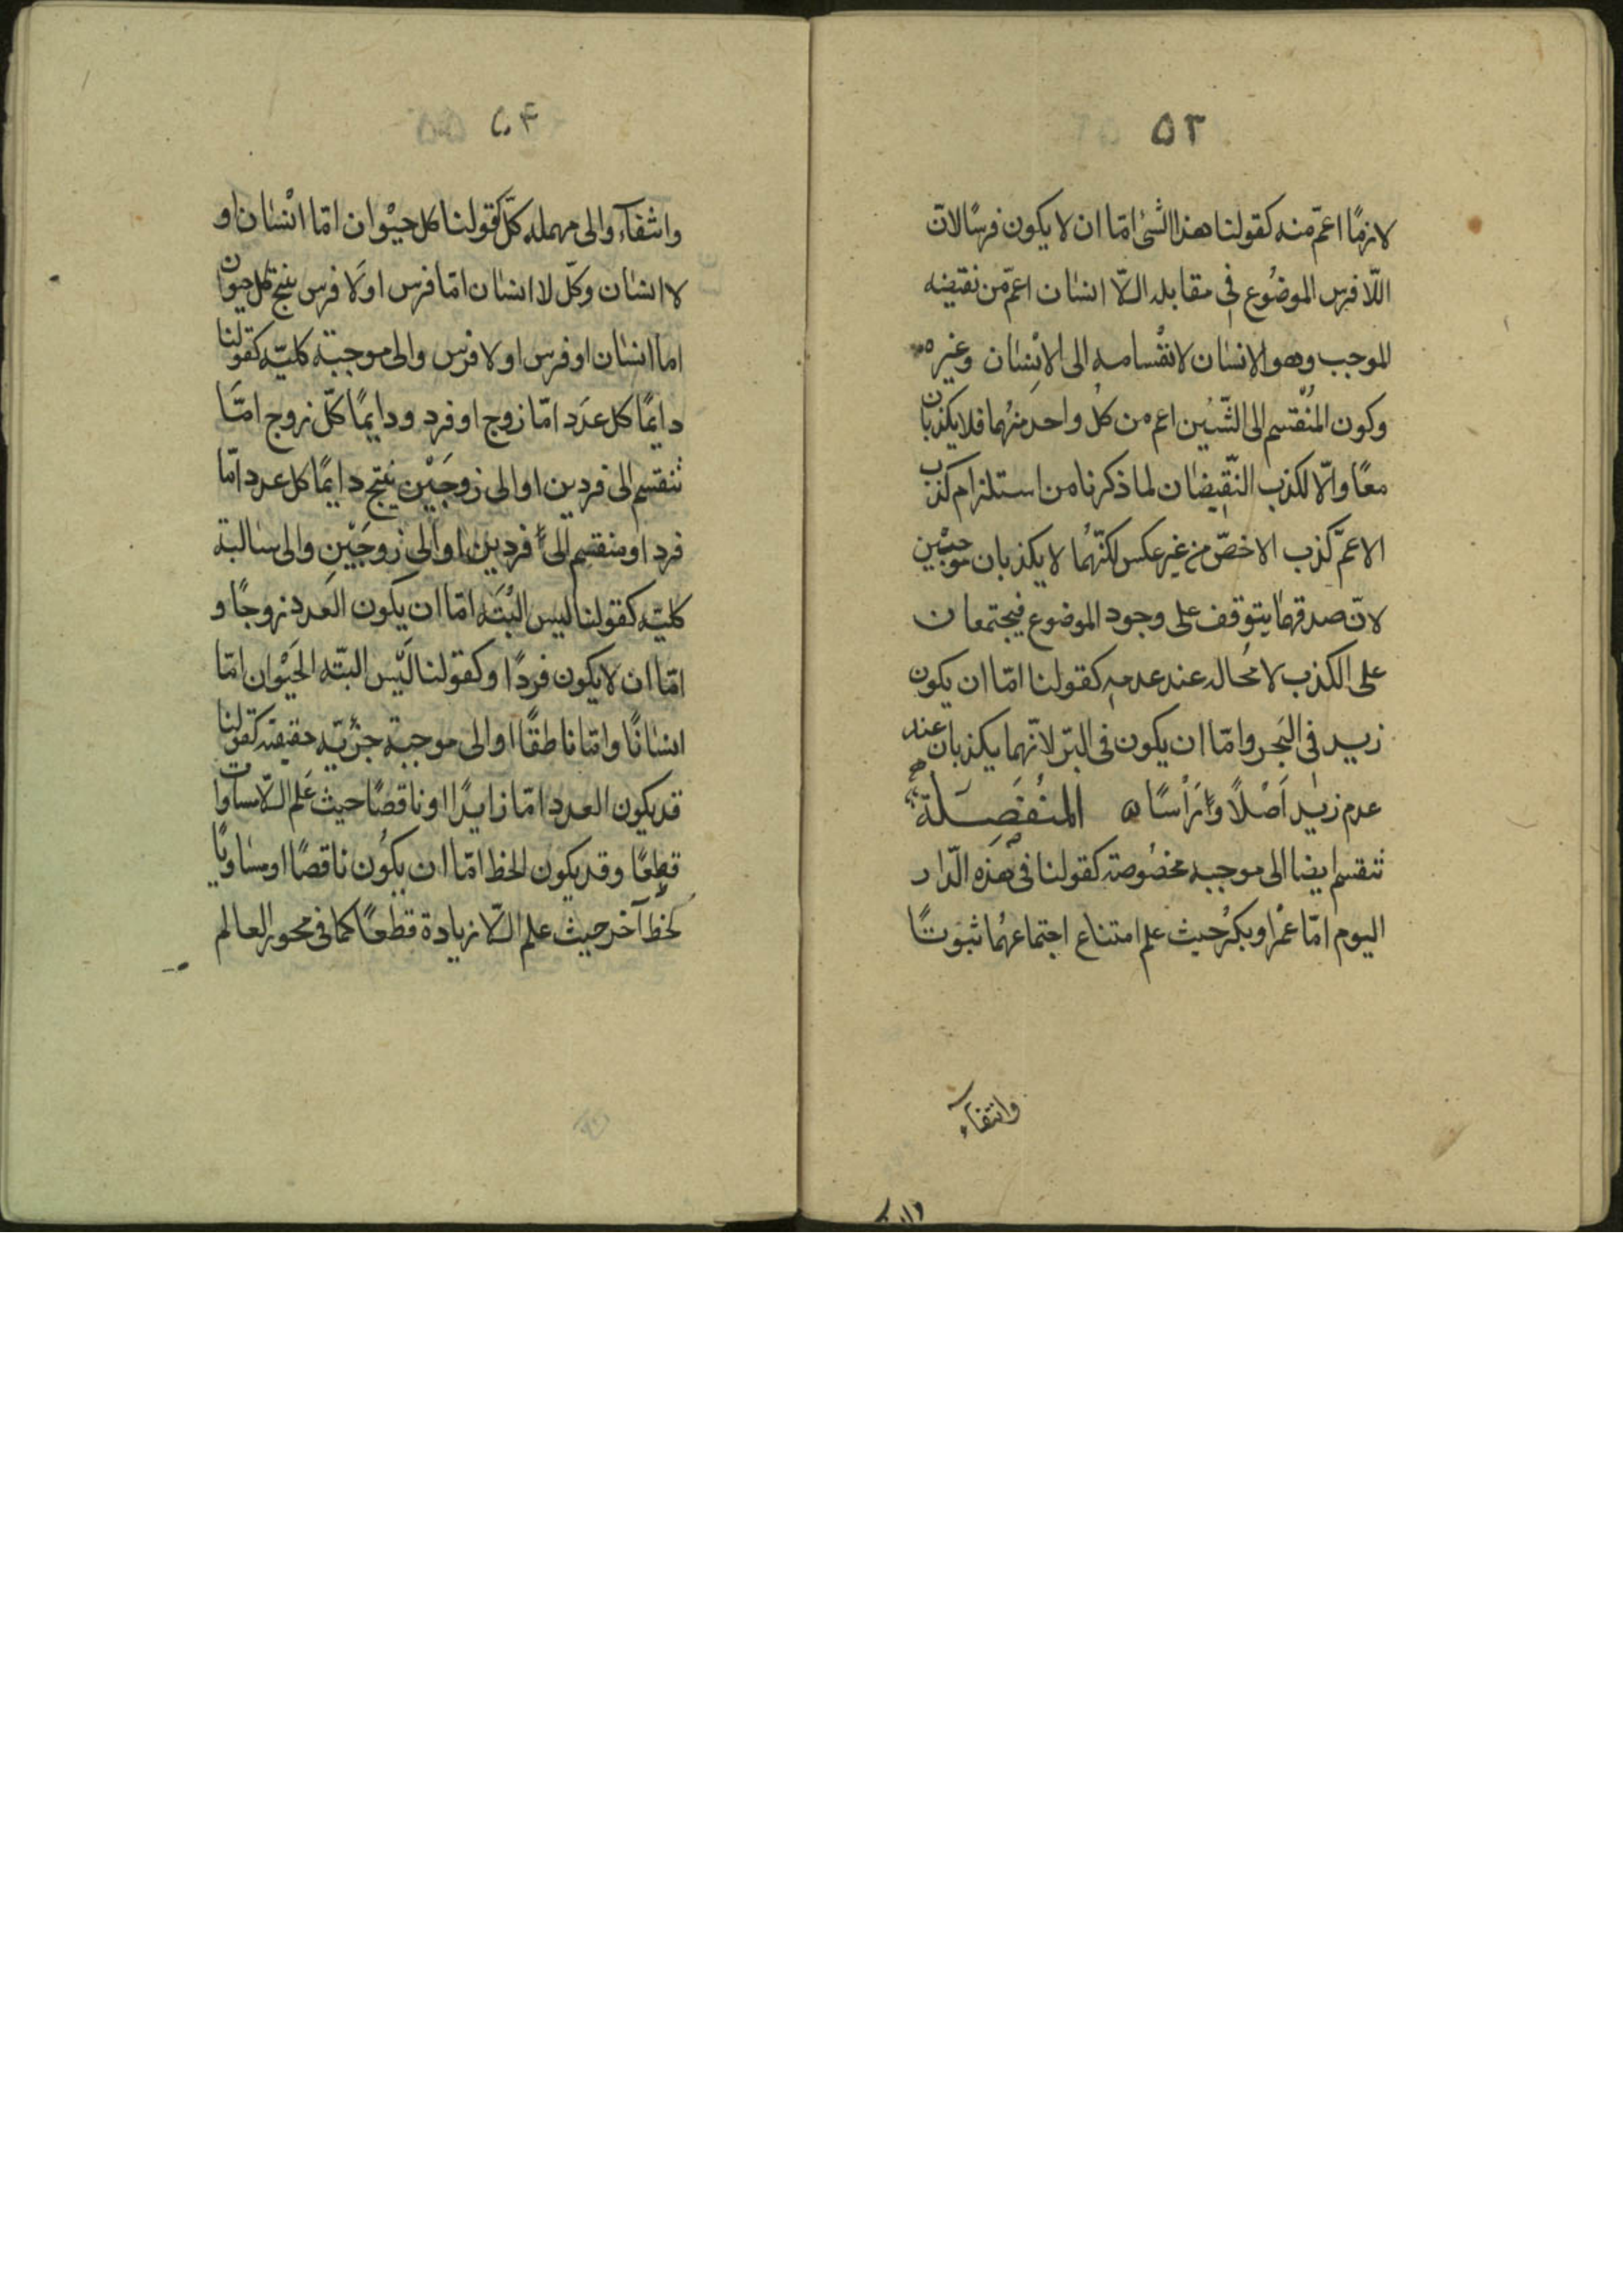 ٥٣
لازمًا اعمّ منه كقولنا هذا الشئ امّا ان لا يكون فرسًا لانّ
اللّا فرس الموضُوع فى مقابله الّلا انسٰان اعمّ من نقيضه
الموجب وهو الانسٰان لانقْسامه الى الانْسٰان وغيره
وكون المنُقْسم الى الشّيئين اعم من كلُ واحد منهُما فلا يكذبان
معًا والّا لكذب النّقيضٰان لما ذكرنا من استلزام كذب
الاعمّ كذب الاخصّ من غير عكس لكنّهُما لا يكذبان موجبْين
لانّ صدقهما يتوقف على وجود الموضوع فيجتمعان
على الكذب لا محُاله عند عدمه كقولنا امّا ان يكون
زيد فى البَحر وامّا ان يكون فى البرّ لانّهما يكذبان عند
عدم زيد اَصْلًا ورَأسًا المنُفَصِلة
تنقسم ايضا الى موجبه مخصُوصة كقولنا فى هَذه الدّار
اليوم امّا عمْرُ او بكرُ حيث علم امتناع اجتماعهُما ثبوتًا
وانتفآء
٥٤
وانتفآء والى مهمله كلّ كقولنا كل حيْوان امّا انْسٰان او
لا انسٰان وكلّ لا انسٰان امّا فرس اولَا فرس ينتج كل حيوان
اما انسٰان او فرس او لا فرس والى موجبة كليّه كقولنا
دايمًا كل عدَد امّا زوج او فرد ودايمًا كلّ زوج امّا
تنقسم الى فردين او الى زوجَيْن ينتج دايمًا كل عدد امّا
فرد او منقسم الى فردين او الى زوجَيْن والى سٰالبة
كليّه كقولنا ليس البْتَه امّا ان يكون العَدد زوجًا و
امّا ان لا يكون فردًا وكقولنا لَيْس البتّه الحَيْوان امّا
انسٰانًا وامّا ناطقًا او الى موجبة جزْئيّه حقيقة كقولنا
قد يكون العدد امّا زايدًا او ناقصًا حيث عَلم الّلا مساوات
قطعًا وقد يكون الخط امّا ان يكوُن ناقصًا او مسٰاويًا
لخطّ آخر حيث علم الّلا زيادة قطعًا كما فى محور العالم